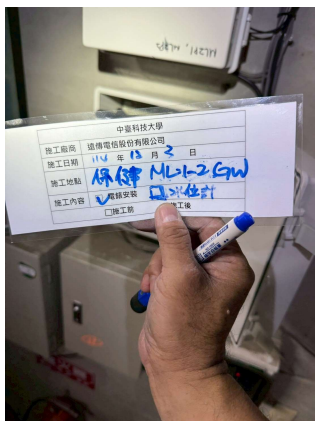 中臺科技大學
施工廠商 遠傳電信股份有限公司
施工日期 114 年 12 月 2 日
施工地點 保健 ML1-2(GW)
施工內容 ✓電錶安裝 水位計
□施工前 施工後